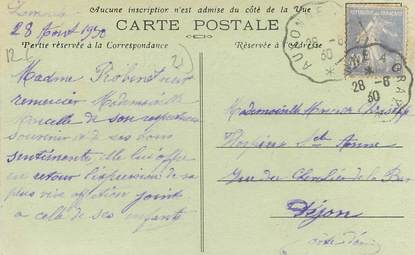 Aucune inscription n'est admise du côté de la Vue
CARTE POSTALE
Partie réservée à la Correspondance
Partie réservée à l'Adresse
28 Août 1930
Madme Robinet
remercier Mademoiselle
de son respectueux
souvenir et de ses bons
sentiments elle lui offre
en retour l'expression de sa
plus vive affection joint
à celle de ses enfants
Mademoiselle
Hospice Ste Anne
Rue du
Dijon
Côte d'Or
28 -8
30
28 -8
30